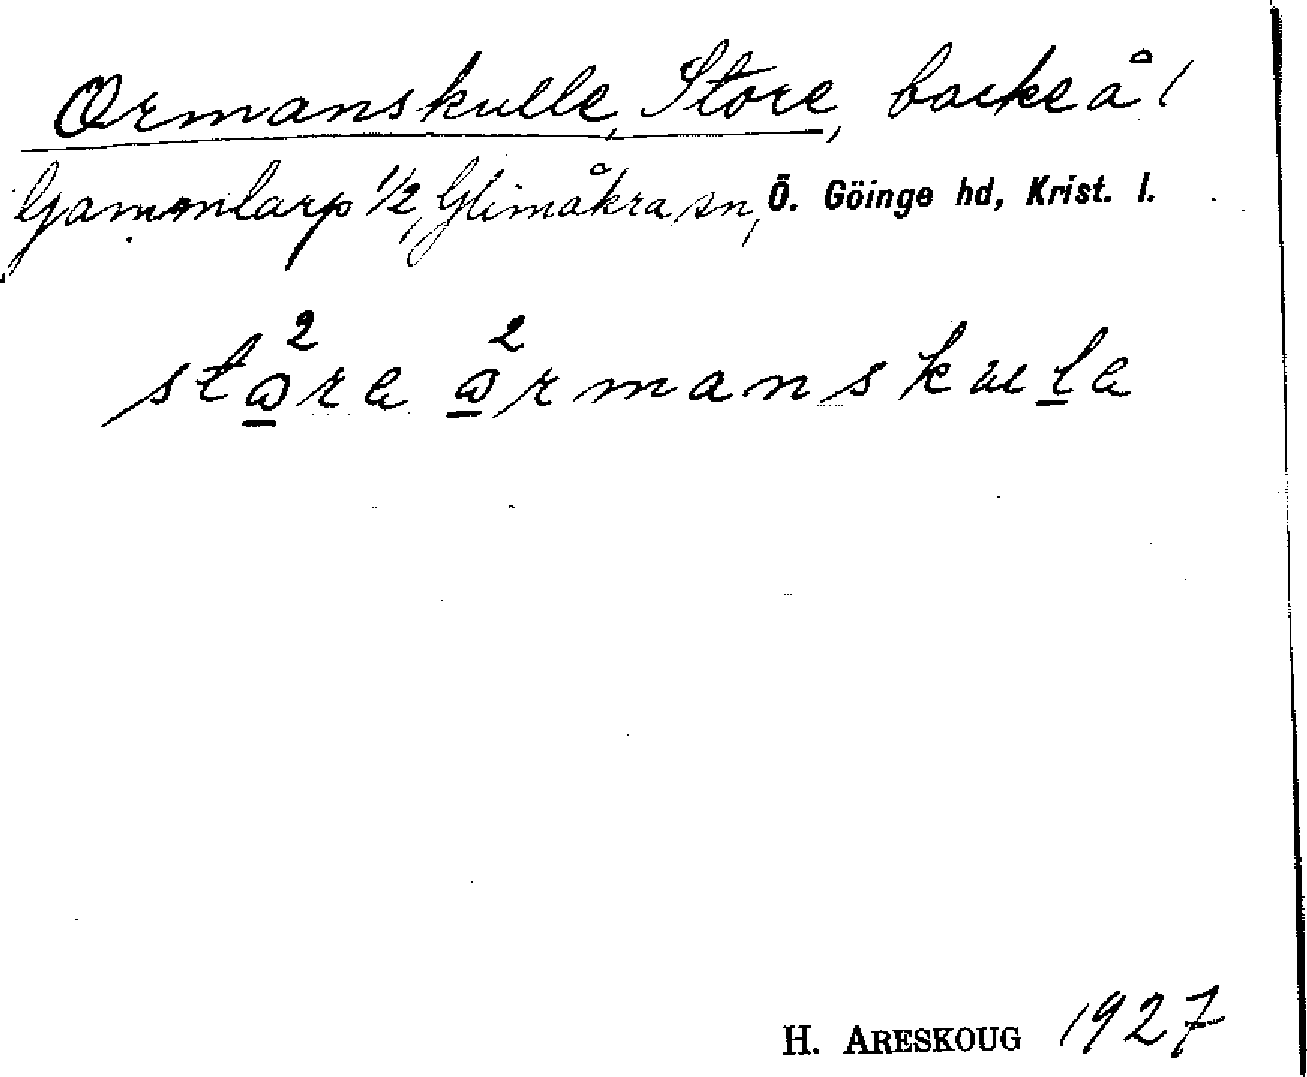 Ormanskulle, Store, backe å l
Gammlarp 1/2, Glimåkra sn, Ö. Göinge hd, Krist. l.
stå²ra å²rmanskula
H. ARESKOUG 1927